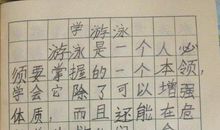 学游泳
游泳是一个人必
须要掌握的一个本领，
学会它除了可以增强
体质，而且还能在危